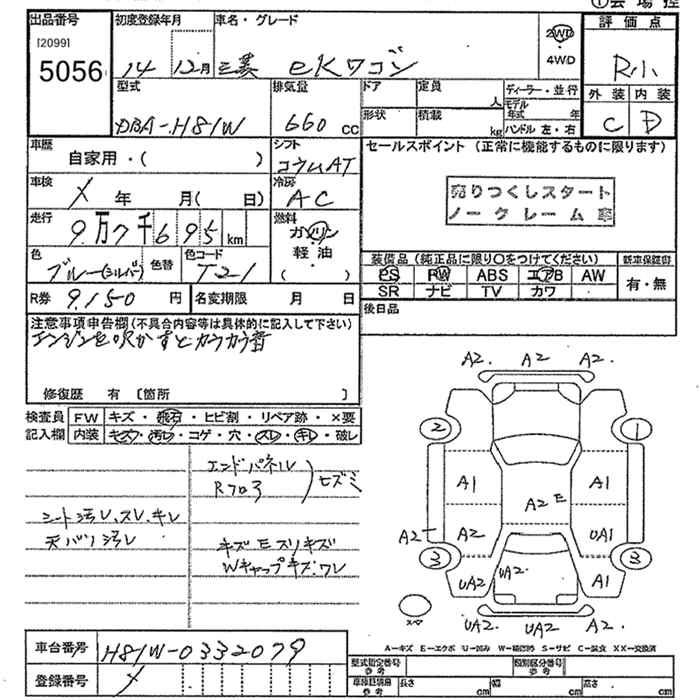 ①会場控
出品番号
[2099]
5056
初度登録年月
14 12月
車名・グレード
三菱 eKワゴン
2WD
・
4WD
評価点
R小
外装 内装
C D
型式
DBA-H81W
排気量
660 cc
ドア
定員
人
形状
積載
kg
ディーラー・並行
モデル
年式 年
ハンドル 左・右
車歴
自家用・( )
シフト
コラムAT
車検
X 年 月( 日)
冷房
AC
走行
9万7千695km
燃料
ガソリン
軽油
( )
色
ブルー(シルバー)
色替
色コード
T21
R券 9,150 円
名変期限 月 日
セールスポイント (正常に機能するものに限ります)
売りつくしスタート
ノークレーム車
装備品 (純正品に限り〇をつけてください)
新車保証書
PS PW ABS エアB AW
SR ナビ TV カワ
有・無
後日品
注意事項申告欄(不具合内容等は具体的に記入して下さい)
エンジンを吹かすとカラカラ音
修復歴 有 〔箇所 〕
検査員 FW キズ・飛石・ヒビ割・リペア跡・×要
記入欄 内装 キズ・汚レ・コゲ・穴・スレ・キレ・破レ
エンドパネル
Rフロア
ヒズミ
シート汚レ、スレ、キレ
天バリ汚レ
キズ エスリキズ
Wキャップキズ、ワレ
A2. A2 A2.
2 1
A1 A1
A2 E
A2 A2 UA1
3 3
UA2 UA2 A1
スペ
UA2 UA2 A2.
A−キズ E−エクボ U−凹み W−補修跡 S−サビ C−腐食 XX−交換済
車台番号 H81W-0332079
登録番号 X
型式指定番号
参考
類別区分番号
参考
車検証数値
参考
長さ cm 幅 cm 高さ cm